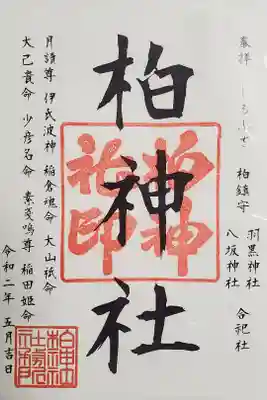 奉拝
柏鎮守
羽黒神社
八坂神社
合祀社
柏神社
月讀尊 伊氐波神 稲倉魂命 大山祇命
大己貴命 少彦名命 素戔嗚尊 稲田姫命
令和二年 五月吉日